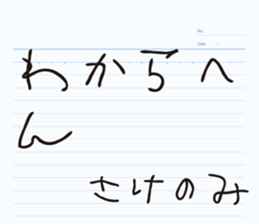 No.
Date
わからへ
ん
さけのみ